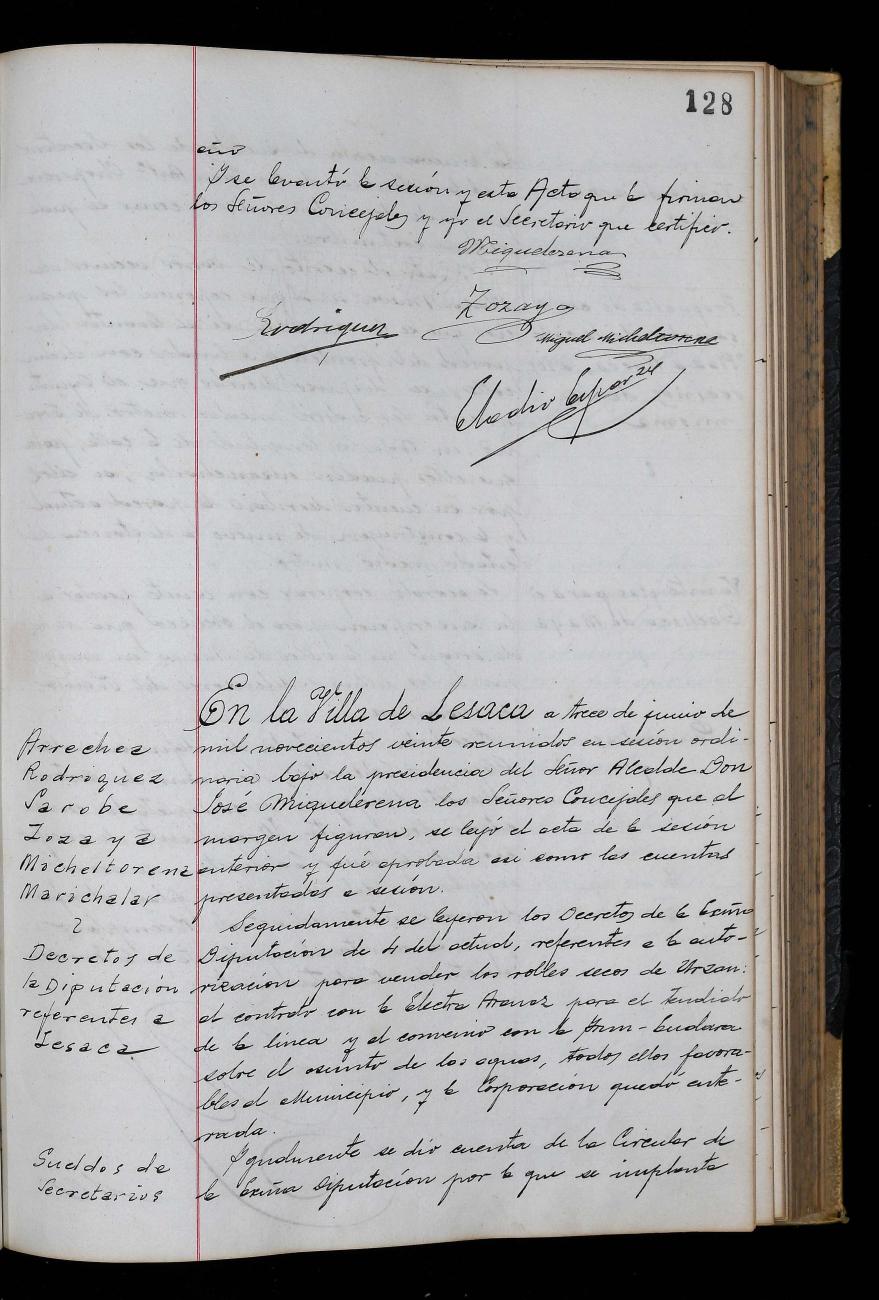 128
año
Y se levantó la sesión y esta Acta que la firman
los Señores Concejales y yo el Secretario que certifico.
Miquelerena
Zozaya
Rodriguez
Miguel Micheltorena
Eladio
En la Villa de Lesaca a trece de junio de
mil novecientos veinte reunidos en sesión ordi-
naria bajo la presidencia del Señor Alcalde Don
José Miquelerena los Señores Concejales que al
margen figuran, se leyó el acta de la sesión
anterior y fué aprobada asi como las cuentas
presentadas a sesión.
Arrechea
Rodriguez
Sarobe
Zozaya
Micheltorena
Marichalar
Decretos de
la Diputación
referentes a
Lesaca
Seguidamente se leyeron los Decretos de la Exma
Diputación de 4 del actual, referentes a la auto-
rización para vender los robles secos de
el contrato con la Electra Aranaz para el tendido
de la linea y el convenio con la
sobre el asunto de las aguas, todos ellos favora-
bles al Municipio, y la Corporación quedó ente-
rada.
Sueldos de
Secretarios
Igualmente se dió cuenta de la Circular de
la Exma Diputación por la que se implanta